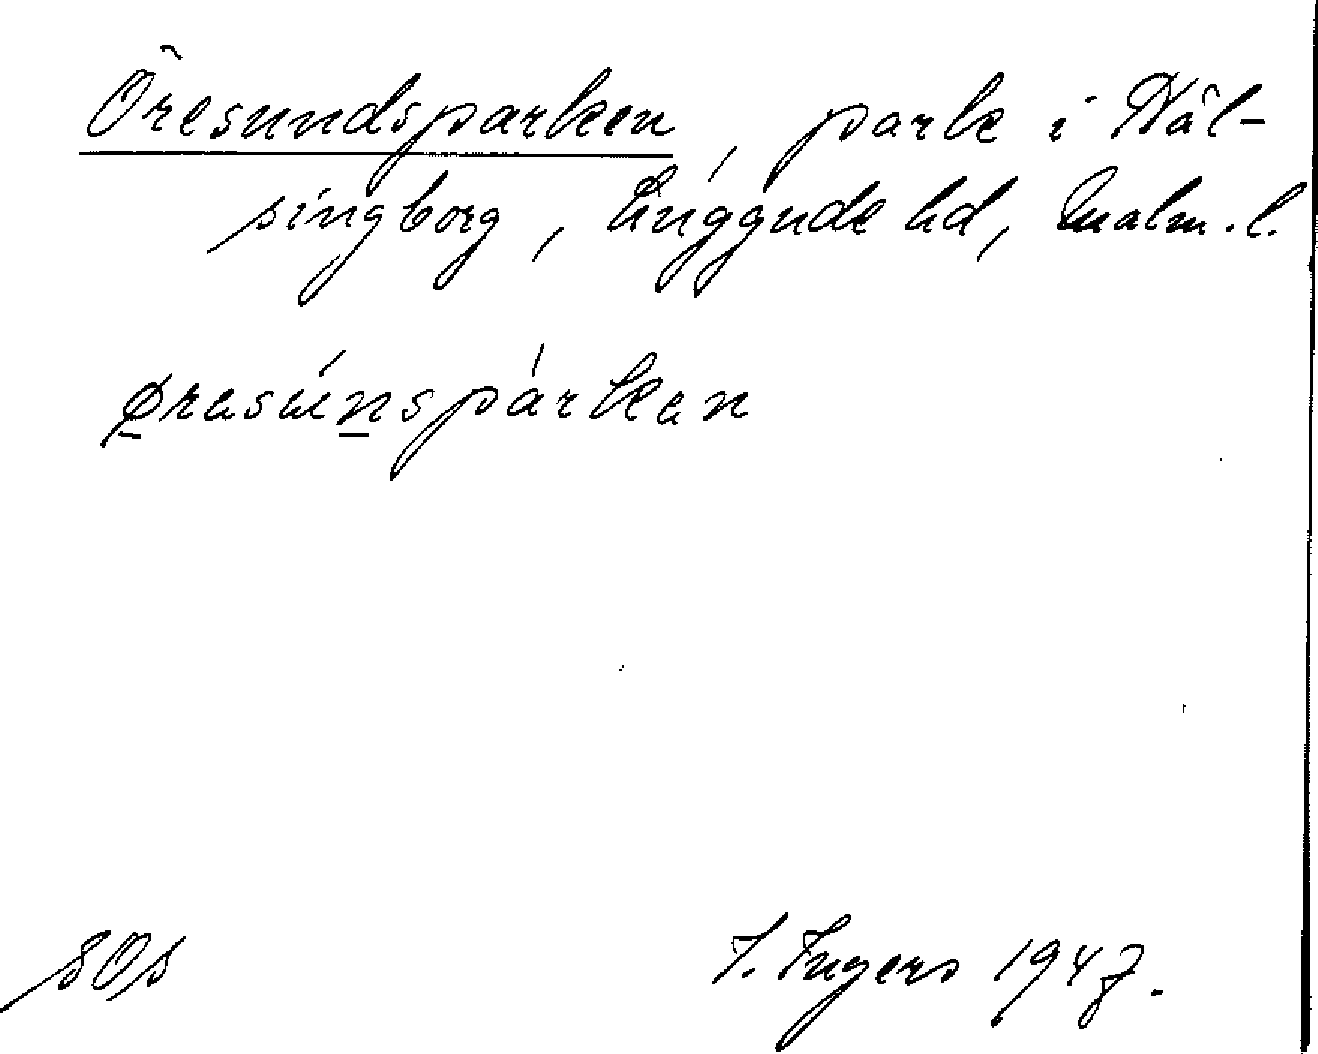 Öresundsparken, park i Häl-
singborg, Luggude hd, Malm. l.
øresúnspárken
I. Ingers 1947.